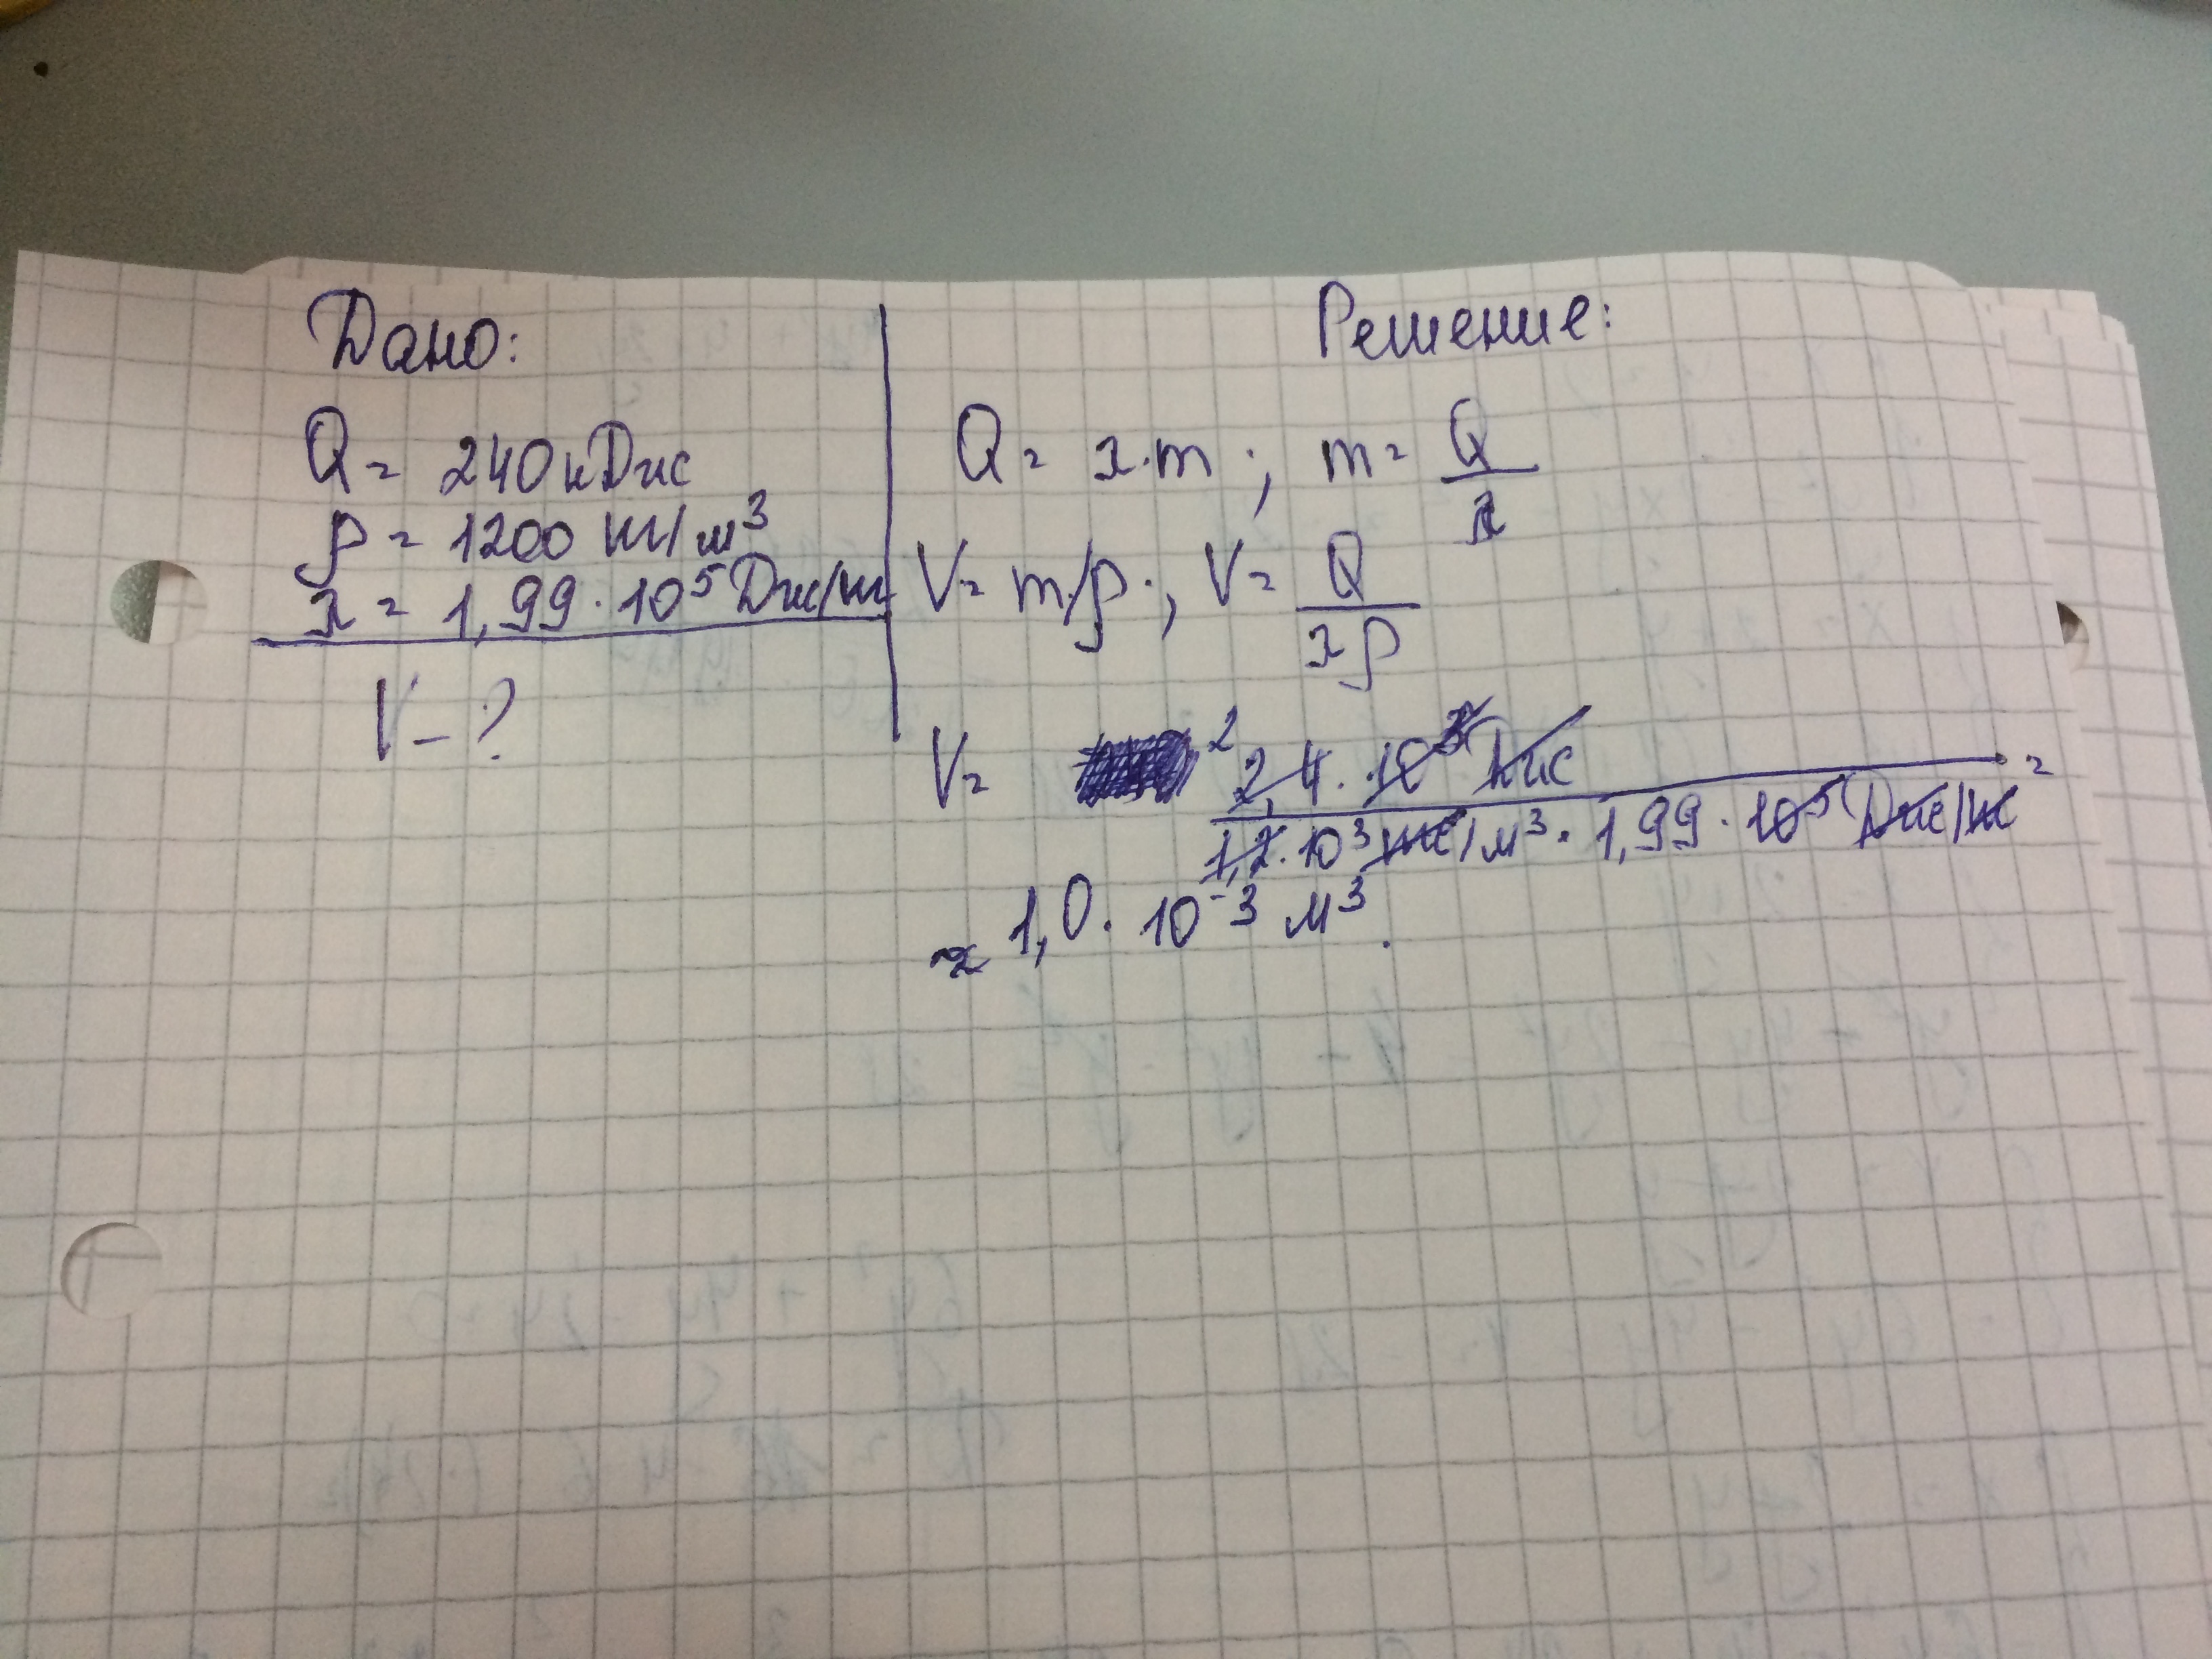 Дано:
Q = 240 кДж
ρ = 1200 кг/м³
λ = 1,99 · 10⁵ Дж/кг
V – ?
Решение:
Q = λ·m ; m = Q/λ
V = m/ρ ; V = Q/λρ
V = 2 2,4 · 10⁵ Дж / 1,2 · 10³ кг/м³ · 1,99 · 10⁵ Дж/кг =
≈ 1,0 · 10⁻³ м³.